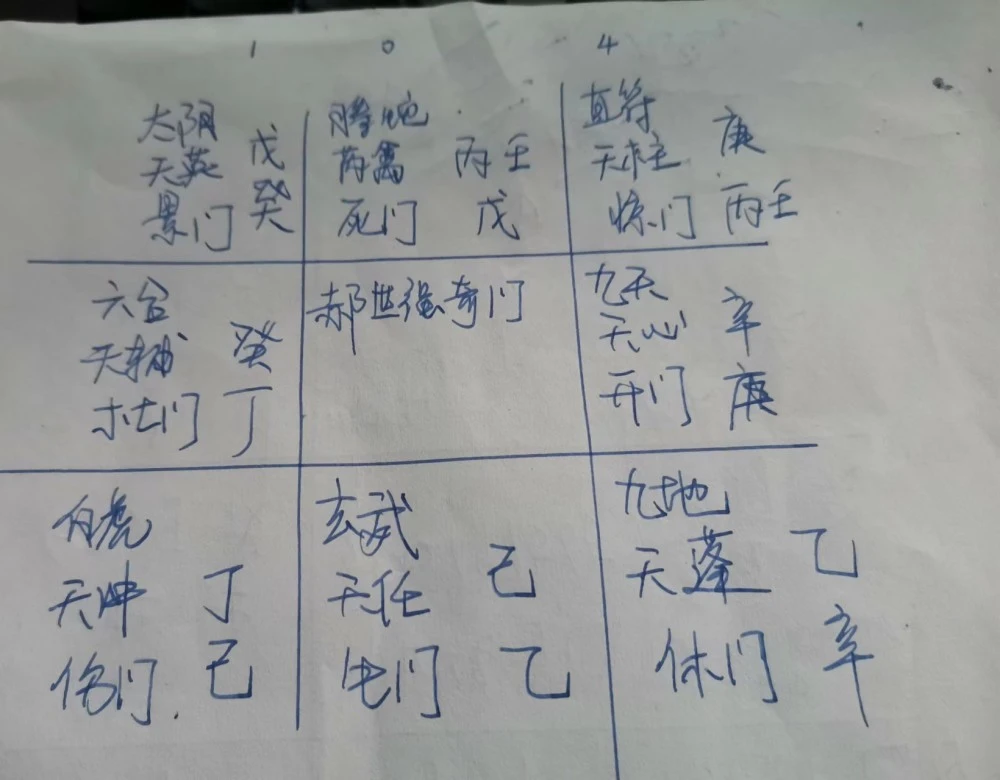 1 0 4
太阴
天英 戊
景门 癸
腾蛇
芮禽 丙壬
死门 戊
直符
天柱 庚
惊门 丙壬
六合
天辅 癸
杜门 丁
郝世强奇门
九天
天心 辛
开门 庚
白虎
天冲 丁
伤门 己
玄武
天任 己
生门 乙
九地
天蓬 乙
休门 辛